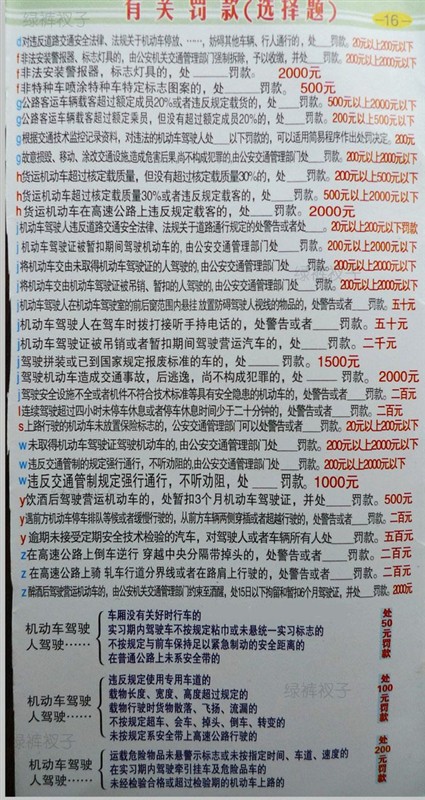 有关罚款(选择题)
—16—
d对违反道路交通安全法律、法规关于机动车停放、……,妨碍其他车辆、行人通行的,处___罚款。20元以上200元以下
f非法安装警报器、标志灯具的,由公安机关交通管理部门强制拆除,予以收缴,并处___罚款。200元以上2000元以下
f非法安装警报器,标志灯具的,处____罚款。2000元
f非特种车喷涂特种车特定标志图案的,处____罚款。500元
g公路客运车辆载客超过额定成员20%或者违反规定载货的,处___罚款。500元以上2000元以下
g公路客运车辆载客超过额定乘员,但没有超过额定成员20%的,处___罚款。200元以上500元以下
g根据交通技术监控记录资料,对违法的机动车驾驶人处___以下罚款的,可以适用简易程序作出处罚决定。200元
g故意损毁、移动、涂改交通设施,造成危害后果,尚不构成犯罪的,由公安交通管理部门处___罚款。200元以上2000元以下
h货运机动车超过核定载质量,但没有超过核定载质量30%的,处___罚款。200元以上500元以下
h货运机动车超过核定载质量30%或者违反规定载客的,处___罚款。500元以上2000元以下
h货运机动车在高速公路上违反规定载客的,处____罚款。2000元
j机动车驾驶人违反道路交通安全法律、法规关于道路通行规定的处警告或者处___。20元以上200元以下罚款
j机动车驾驶证被暂扣期间驾驶机动车的,由公安交通管理部门处___罚款。200元以上2000元以下
j将机动车交由未取得机动车驾驶证的人驾驶的,由公安交通管理部门处___罚款。200元以上2000元以下
j将机动车交由机动车驾驶证被吊销、暂扣的人驾驶的,由公安交通管理部门处___罚款。200元以上2000元以下
j机动车驾驶人在机动车驾驶室的前后窗范围内悬挂 放置防碍驾驶人视线的物品的,处警告或者___罚款。五十元
j机动车驾驶人在驾车时拨打接听手持电话的,处警告或者___罚款。五十元
j机动车驾驶证被吊销或者暂扣期间驾驶营运汽车的,处___罚款。二千元
j驾驶拼装或已到国家规定报废标准的车的,处____罚款。1500元
j驾驶机动车造成交通事故,后逃逸,尚不构成犯罪的,处____罚款。2000元
j驾驶安全设施不全或者机件不符合技术标准等具有安全隐患的机动车的,处警告或者___罚款。二百元
l连续驾驶超过四小时未停车休息或者停车休息时间少于二十分钟的,处警告或者___罚款。二百元
s上路行驶的机动车未放置保险标志的,公安交通管理部门可以处警告或者___罚款。20元以上200元以下
w未取得机动车驾驶证驾驶机动车的,由公安交通管理部门处___罚款。200元以上2000元以下
w违反交通管制的规定强行通行,不听劝阻的,由公安交通管理部门处___罚款。200元以上2000元以下
w违反交通管制规定强行通行,不听劝阻,处____罚款。1000元
y饮酒后驾驶营运机动车的,处暂扣3个月机动车驾驶证,并处___罚款。500元
y遇前方机动车停车排队等候或者缓慢行驶的,从前方车辆两侧穿插或者超越行驶的,处警告或者___罚款。二百元
y逾期未接受定期安全技术检验的汽车,对驾驶人或者车辆所有人处___罚款。五百元
z在高速公路上倒车逆行 穿越中央分隔带掉头的,处警告或者___罚款。二百元
z在高速公路上骑 轧车行道分界线或者在路肩上行驶的,处警告或者___罚款。二百元
z醉酒后驾驶营运机动车的,由公安机关交通管理部门约束至酒醒,处15日以下拘留和暂扣6个月驾驶证,并处___罚款。2000元
机动车驾驶人驾驶……
车厢没有关好时行车的
实习期内驾驶车不按规定粘巾或未悬统一实习标志的
不按规定与前车保持足以紧急制动的安全距离的
在普通公路上未系安全带的
处50元罚款
机动车驾驶人驾驶……
违反规定使用专用车道的
载物长度、宽度、高度超过规定的
载物行驶时货物散落、飞扬、流漏的
不按规定超车、会车、掉头、倒车、转变的
未按规定系安全带上高速公路行驶的
处100元罚款
机动车驾驶人驾驶……
运载危险物品未悬警示标志或未按指定时间、车道、速度的
在实习期内驾驶牵引挂车及危险品车的
未经检验合格或超过检验期的机动车上路的
处200元罚款
绿裤衩子